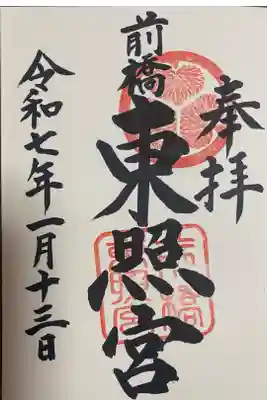 奉拝
前橋
東照宮
令和七年一月十三日
前橋東照宮